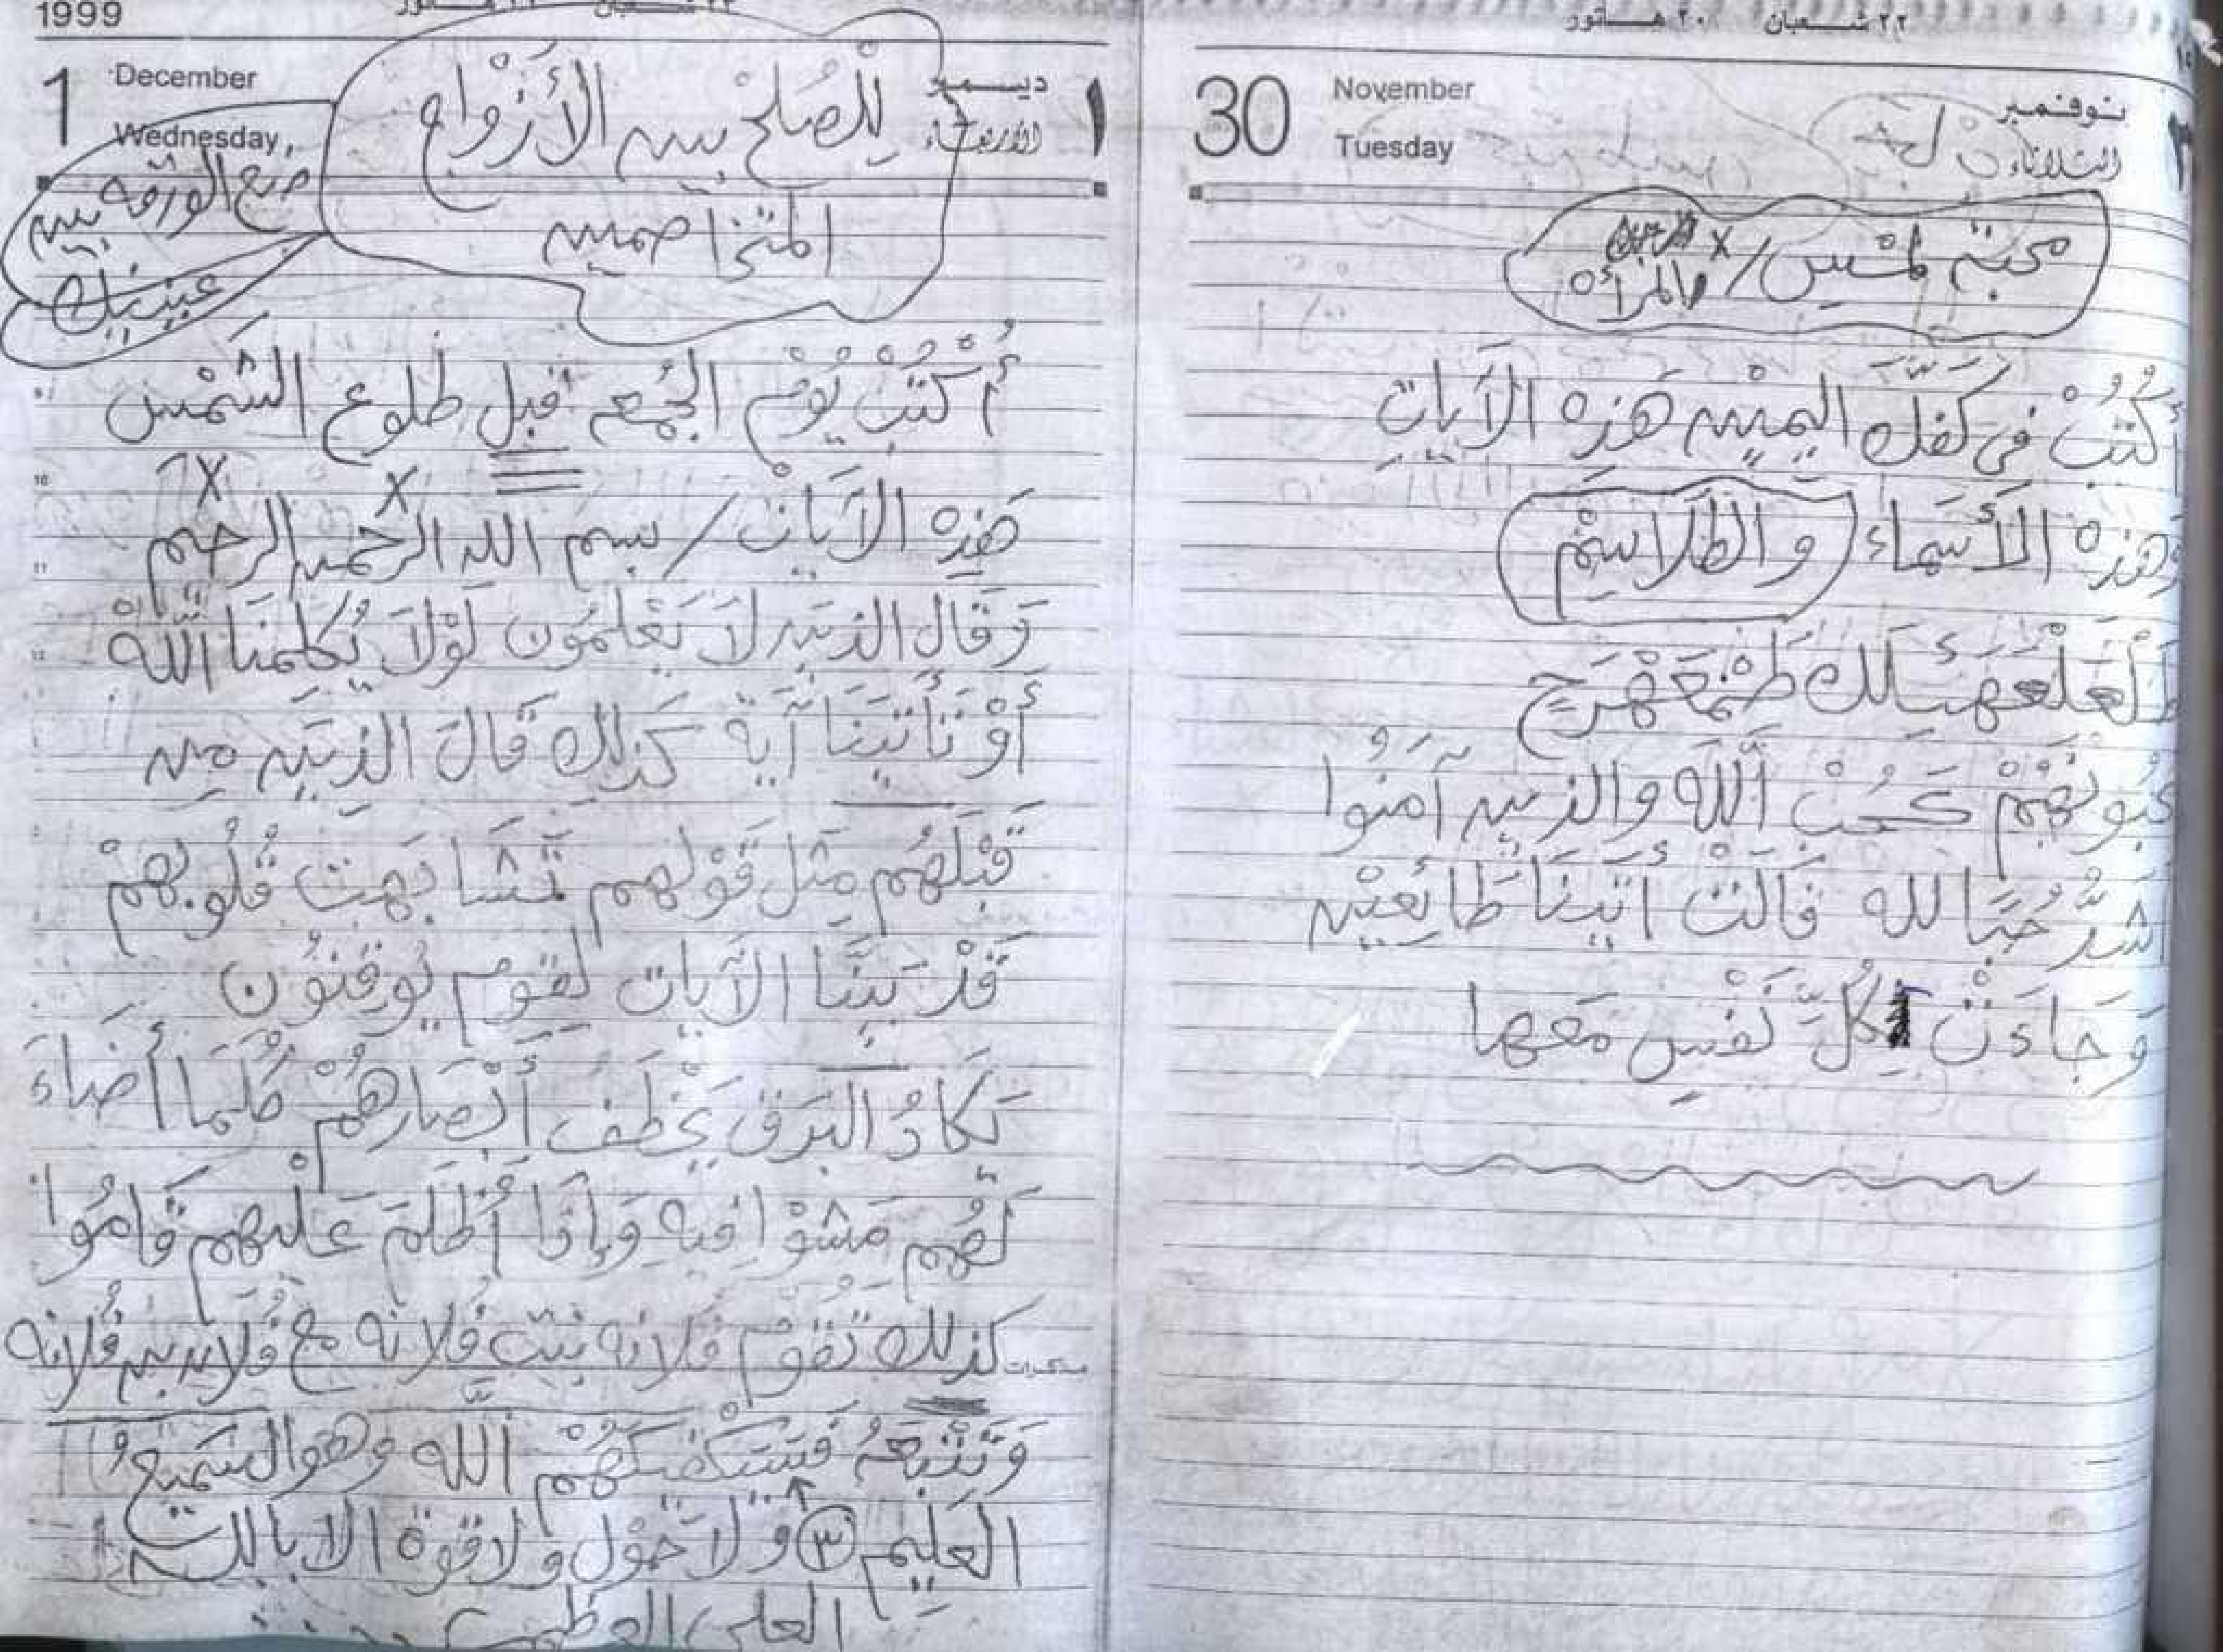 ٢٢ شعبان ٢٠ هاتور
30
November
Tuesday
نوفمبر
الثلاثاء
محبة لمس / x
المرأة
أكتب في كفك اليمين هذه الآيات
وهذه الأسماء والطلاسم
الله والذين آمنوا
أشد حبًا لله قالت أتينا طائعين
وجاءت كل نفس معها
1999
1
December
Wednesday,
ديسمبر
الأربعاء
١
للصلح بين الأزواج
المتخاصمين
ضع الورقه بين
عينيك
أكتب يوم الجمعه قبل طلوع الشمس
هذه الآيات / بسم الله الرحمن الرحيم
وَقَال الذين لَا يَعْلَمُون لَوْلَا يُكَلمنَا اللَّهُ
أَوْ تَأْتينَا آيَة كَذلك قَالَ الذين من
قَبْلَهُم مِثل قَوْلهم تَشَابهَت قُلُوبهُمْ
قَدْ بَيَّنَّا الآيات لقوم يُوقنُون
يَكَادُ البَرق يَخْطَف أَبْصَارهُمْ كُلَّمَا أَضَاءَ
لَهُم مَشَوْا فيه وَإذَا أَظْلَمَ عَليهم قَامُوا
كذلك تَقوْمُ فلانه بنت فُلانه مع فُلان بن فُلانه
وَتتْبَعهُ فَسَيَكْفيكَهُمْ الله وهو السَميعُ
العَلِيم ٣ و لا حَوْل ولا قوة الا بالله
العلى العظيم